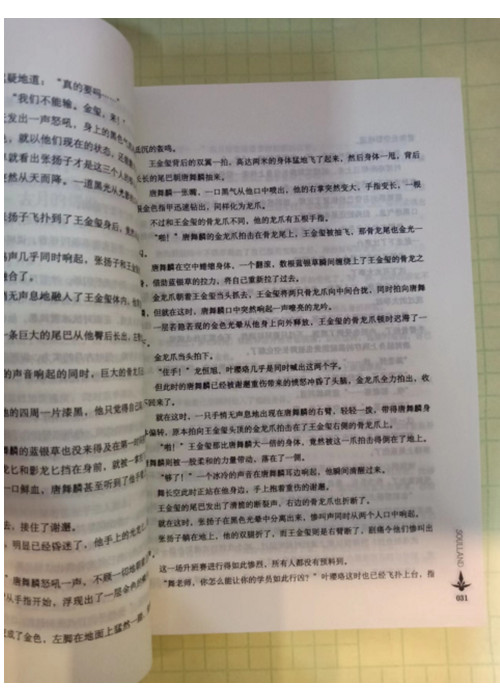 迟疑地道："真的要吗……"
"我们不能输。金玺，来！"
发出一声怒吼，身上的黑色
，就以他们现在的状态，还
就看出张扬子才是这三个人
突然从天而降。一道黑光从
张扬子飞扑到了王金玺身后，
声几乎同时响起，张扬子和王金
融合了。
悄无声息地融入了王金玺体内，
一条巨大的尾巴从他臀后长出，
的声音响起的同时，巨大的龙尾
他的四周一片漆黑，他只觉得自己
舞麟的蓝银草也没来得及在第一
龙匕和影龙匕挡在身前，就被一
一口鲜血，唐舞麟甚至听到了他
去，接住了谢邂。
，明显已经昏迷了，他手上的光龙
唐舞麟怒吼一声，不顾一切地朝着
从手指开始，浮现出了一层金色的
变成了金色，左脚在地面上猛然一
低沉的轰鸣。
王金玺背后的双翼一拍，高达两米的身体猛地飞了起来，然后身体一甩，背后
长长的尾巴朝唐舞麟抽来。
唐舞麟一张嘴，一口黑气从他口中喷出，他的右掌突然变大，手指变长，一根
根金色指甲迅速钻出，同样化为龙爪。
不过和王金玺的骨龙爪不同，他的龙爪有五根手指。
"啪！"唐舞麟的金龙爪拍击在骨龙尾上，王金玺被抽飞，那骨龙尾也金光一
。
唐舞麟在空中蜷缩身体，一个翻滚，数根蓝银草瞬间缠绕上了王金玺的骨龙之
，借助蓝银草的拉力，将自己重新拉了过去。
金龙爪朝着王金玺当头抓去，王金玺将两只骨龙爪向中间合拢，同时拍向唐舞
但就在这时，唐舞麟口中突然响起一声嘹亮的龙吟。
一层若隐若现的金色光晕从他身上向外释放，王金玺的骨龙爪顿时迟滞了一
金龙爪当头拍下。
"住手！"龙恒旭、叶璎珞几乎是同时喊出这两个字。
但此时的唐舞麟已经被谢邂重伤带来的愤怒冲昏了头脑，金龙爪全力拍出，收
不回来了。
就在这时，一只手悄无声息地出现在唐舞麟的右臂，轻轻一拨，带得唐舞麟身
体偏转，原本拍向王金玺头顶的金龙爪拍击在了王金玺右侧的骨龙爪上。
"啪！"王金玺那比唐舞麟大一倍的身体，竟然被这一爪拍击得倒在了地上，
唐舞麟则被一股柔和的力量带动，落在了一侧。
"够了！"一个冰冷的声音在唐舞麟耳边响起，他瞬间清醒过来。
舞长空此时正站在他身边，手上抱着重伤的谢邂。
王金玺的尾巴发出了清脆的断裂声，右边的骨龙爪也折断了。
就在这时，张扬子在黑色光晕中分离出来，惨叫声同时从两个人口中响起。
张扬子躺在地上，他的双腿折了，而王金玺则是右臂断了，剧痛令他们惨叫出
这一场升班赛进行得如此惨烈，所有人都没有预料到。
"舞老师，你怎么能让你的学员如此行凶？"叶璎珞这时也已经飞扑上台，指
SOULLAND
031